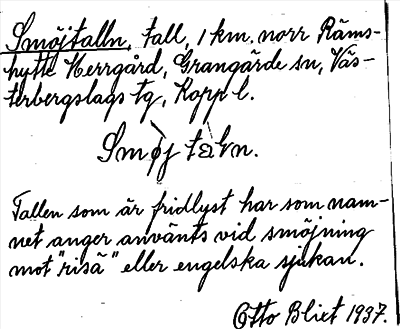 Smöjtalln, tall, 1 km. norr Räms-
hytte Herrgård, Grangärde sn, Väs-
terbergslags tg, Kopp l.
Smøj talln.
Tallen som är fridlyst har som nam-
net anger använts vid smöjning
mot "riså" eller engelska sjukan.
Otto Blixt 1937.